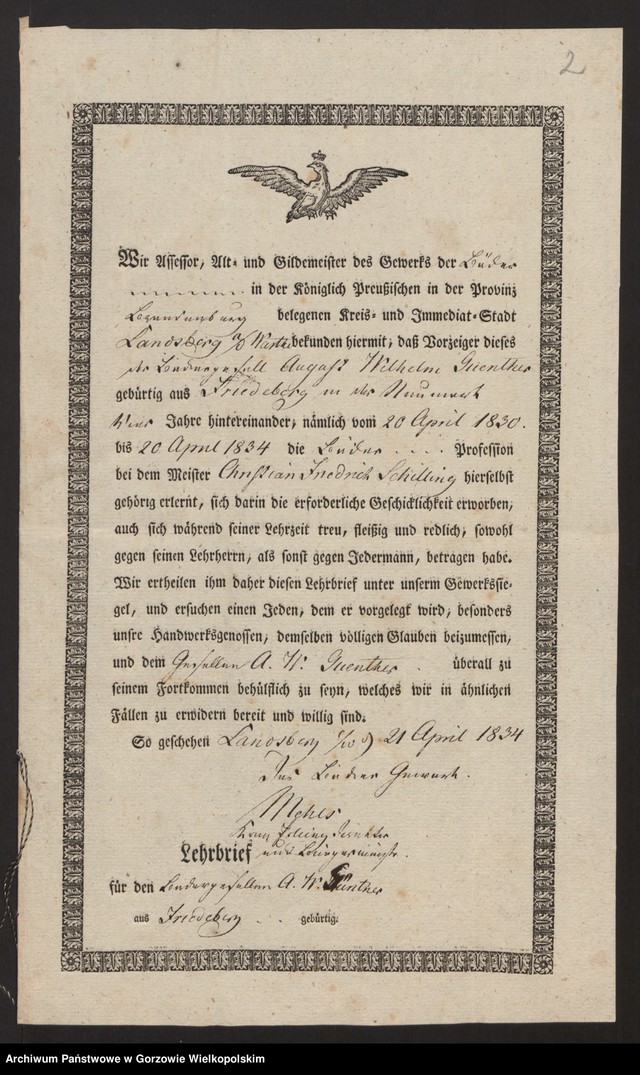 2
Wir Assessor, Alt- und Gildemeister des Gewerks der Binder
in der Königlich Preußischen in der Provinz
Brandenburg belegenen Kreis- und Immediat-Stadt
Landsberg a/d Warthe bekunden hiermit, daß Vorzeiger dieses
der Bindergesell August Wilhelm Guenther
gebürtig aus Friedeberg in der Neumark
Vier Jahre hintereinander, nämlich vom 20 April 1830.
bis 20 April 1834 die Binder . . . . Profession
bei dem Meister Christian Friedrich Schilling hierselbst
gehörig erlernt, sich darin die erforderliche Geschicklichkeit erworben,
auch sich während seiner Lehrzeit treu, fleißig und redlich, sowohl
gegen seinen Lehrherrn, als sonst gegen Jedermann, betragen habe.
Wir ertheilen ihm daher diesen Lehrbrief unter unserm Gewerkssie-
gel, und ersuchen einen Jeden, dem er vorgelegt wird, besonders
unsre Handwerksgenossen, demselben völligen Glauben beizumessen,
und dem Gesellen A. W. Guenther . überall zu
seinem Fortkommen behülflich zu seyn, welches wir in ähnlichen
Fällen zu erwidern bereit und willig sind.
So geschehen Landsberg 21 April 1834
Das Binder Gewerk.
Lehrbrief
für den Bindergesellen A. W. Günther
aus Friedeberg . . gebürtig.
Archiwum Państwowe w Gorzowie Wielkopolskim